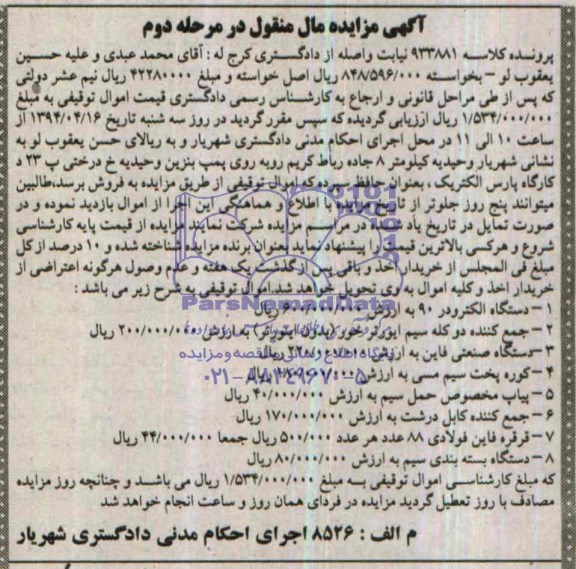 آگهی مزایده مال منقول در مرحله دوم
پرونده کلاسه ۹۳۳۸۸۱ نیابت واصله از دادگستری کرج له : آقای محمد عبدی و علیه حسین
یعقوب لو - بخواسته ۸۴۸/۵۹۶/۰۰۰ ریال اصل خواسته و مبلغ ۴۲۲۸۰۰۰۰ ریال نیم عشر دولتی
که پس از طی مراحل قانونی و ارجاع به کارشناس رسمی دادگستری قیمت اموال توقیفی به مبلغ
۱/۵۳۴/۰۰۰/۰۰۰ ریال ارزیابی گردیده که سپس مقرر گردید در روز سه شنبه تاریخ ۱۳۹۴/۰۴/۱۶ از
ساعت ۱۰ الی ۱۱ در محل اجرای احکام مدنی دادگستری شهریار و به ریالای حسن یعقوب لو به
نشانی شهریار وحیدیه کیلومتر ۸ جاده رباط کریم روبه روی پمپ بنزین وحیدیه خ درختی پ ۲۳ د
کارگاه پارس الکتریک ، بعنوان حافظ سپرده که اموال توقیفی از طریق مزایده به فروش برسد،طالبین
میتوانند پنج روز جلوتر از تاریخ مزایده با اطلاع و هماهنگی این اجرا از اموال بازدید نموده و در
صورت تمایل در تاریخ یاد شده در مراسم مزایده شرکت نمایند مزایده از قیمت پایه کارشناسی
شروع و هرکسی بالاترین قیمت را پیشنهاد نماید بعنوان برنده مزایده شناخته شده و ۱۰ درصد از کل
مبلغ فی المجلس از خریدار اخذ و باقی پس از گذشت یک هفته و عدم وصول هرگونه اعتراضی از
خریدار اخذ و کلیه اموال به وی تحویل خواهد شد.اموال توقیفی به شرح زیر می باشد :
۱- دستگاه الکترودر ۹۰ به ارزش ۶۰۰/۰۰۰/۰۰۰ ریال
۲- جمع کننده دو کله سیم اینورتر خور (بدون اینورتر) به ارزش ۲۰۰/۰۰۰/۰۰۰ ریال
۳- دستگاه صنعتی فاین به ارزش ریال
۴- کوره پخت سیم مسی به ارزش ریال
۵- پیاپ مخصوص حمل سیم به ارزش ۴۰/۰۰۰/۰۰۰ ریال
۶- جمع کننده کابل درشت به ارزش ۱۷۰/۰۰۰/۰۰۰ ریال
۷- قرقره فاین فولادی ۸۸ عدد هر عدد ۵۰۰/۰۰۰ ریال جمعا ۴۴/۰۰۰/۰۰۰ ریال
۸- دستگاه بسته بندی سیم به ارزش ۸۰/۰۰۰/۰۰۰ ریال
که مبلغ کارشناسی اموال توقیفی به مبلغ ۱/۵۳۴/۰۰۰/۰۰۰ ریال می باشد و چنانچه روز مزایده
مصادف با روز تعطیل گردید مزایده در فردای همان روز و ساعت انجام خواهد شد
م الف : ۸۵۲۶ اجرای احکام مدنی دادگستری شهریار
ParsNamadData
پایگاه اطلاع رسانی مناقصه و مزایده
۰۲۱-۸۸۳۴۹۶۷۰-۵